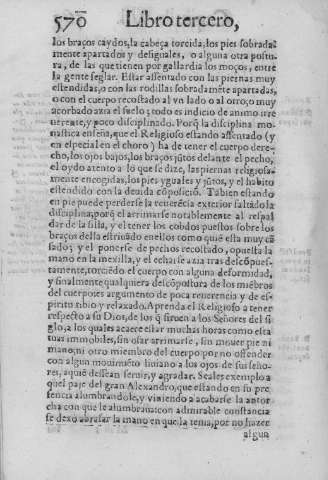 570 Libro tercero,
los braços caydos, la cabeça torcida, los pies sobradã
mente apartados y desiguales, o alguna otra postu
ra, de las que tienen por gallardia los moços, entre
la gente seglar. Estar assentado con las piernas muy
estendidas, o con las rodillas sobradamẽte apartadas,
o con el cuerpo recostado al vn lado o al otro, o muy
acorbado azia el suelo; todo es indicio de animo irre
uerente, y poco disciplinado. Porq̃ la disciplina mo-
nastica enseña, que el Religioso estando assentado (y
en especial en el choro) ha de tener el cuerpo dere-
cho, los ojos bajos, los braços jũtos delante el pecho,
el oydo atento a lo que se dize, las piernas religiosa-
mente encogidas, los pies yguales y jũtos, y el habito
estendido con la deuida cõposiciõ. Tabien estando
en pie puede perderse la reuerẽcia exterior faltãdo la
disciplina, porq̃ el arrimarse notablemente al respal
dar de la silla, y el tener los cobdos puestos sobre los
braços della estriuãdo en ellos como quiẽ esta muy cã
sado; y el ponerse de pechos recostado, o puesta la
mano en la mexilla, y el echarse azia tras descõpues-
tamente, torciẽdo el cuerpo con alguna deformidad,
y finalmente qualquiera descõpostura de los miẽbros
del cuerpo es argumento de poca reuerencia y de es-
piritu tibio y relaxado. Aprenda el Religioso a tener
respecto a su Dios, de los q̃ siruen a los Señores del si
glo, a los quales acaece estar muchas horas como esta
tuas immobiles, sin osar arrimarse, sin mouer pie ni
mano, ni otro miembro del cuerpo por no offender
con algun mouimiẽto liuiano a los ojos de sus seño-
res, a quiẽ dessean seruir, y agradar. Seales exemplo a
quel paje del gran Alexandro, que estando en su pre
sencia alumbrandole, y viniendo a acabarse la antor
cha con que le alumbraua: con admirable constancia
se dexo abrasar la mano en que la tenia, por no hazer
algun